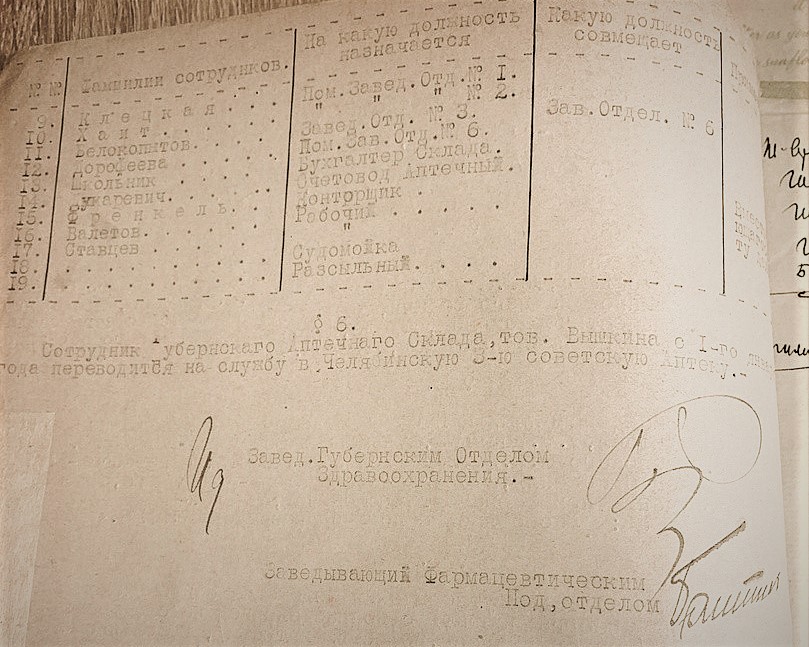 № № Фамилии сотрудников. На какую должность назначается Какую должность совмещает
9. К л е ц к а я . . . Пом.Завед.Отд. № I.
10. Х а и т . . . . " " " № 2.
11. Белокопытов. . . . Завед.Отд. № 3. Зав.Отдел. № 6
12. Дорофеева . . . . Пом.Зав.Отд.№ 6.
13. Школьник . . . . Бухгалтер Склада.
14. . . . . Счетовод Аптечный.
15. Ф р е н к е л ь. . . Конторщик .
16. Валетов. . . . . Рабочий . . . . .
17. Ставцев . . . . "
18. . . . . . . . Судомойка
19. . . . . . . . Разсыльный. . . . .
§ 6.
Сотрудник Губернскаго Аптечнаго Склада,тов. Вышкина с I-го
года переводится на службу в Челябинскую 3-ю советскую Аптеку.-
Завед.Губернским Отделом
Здравоохранения.-
Заведывающий Фармацевтическим
Под,отделом